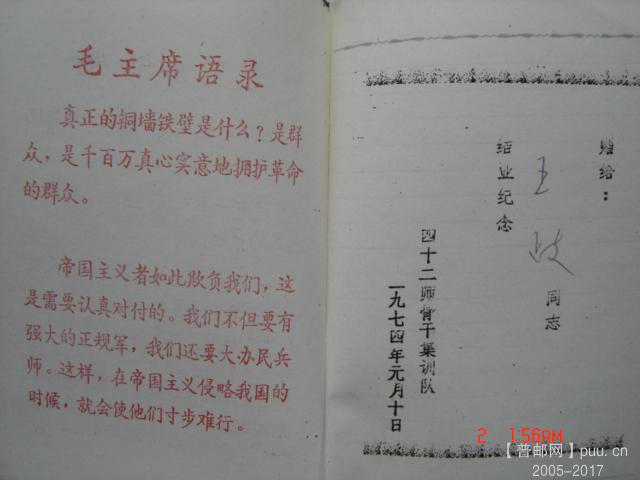 毛主席语录
真正的铜墙铁壁是什么？是群
众，是千百万真心实意地拥护革命
的群众。
帝国主义者如此欺负我们，这
是需要认真对付的。我们不但要有
强大的正规军，我们还要大办民兵
师。这样，在帝国主义侵略我国的
时候，就会使他们寸步难行。
赠给：
王政同志
结业纪念
四十二师骨干集训队
一九七四年元月十日
2 1:56AM
【普邮网】puu.cn
2005-2017